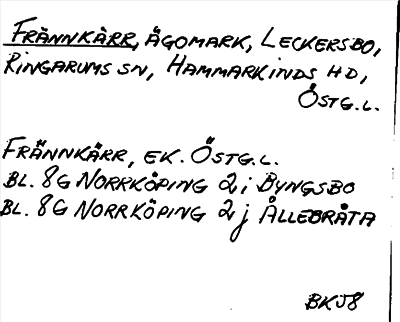 FRÄNNKÄRR, ÄGOMARK, LECKERSBO,
RINGARUMS SN, HAMMARKINDS HD,
ÖSTG.L.
FRÄNNKÄRR, EK. ÖSTG.L.
BL. 8G NORRKÖPING 2i BYNGSBO
BL. 8G NORRKÖPING 2j ÅLLEBRÅTA
BKJ8